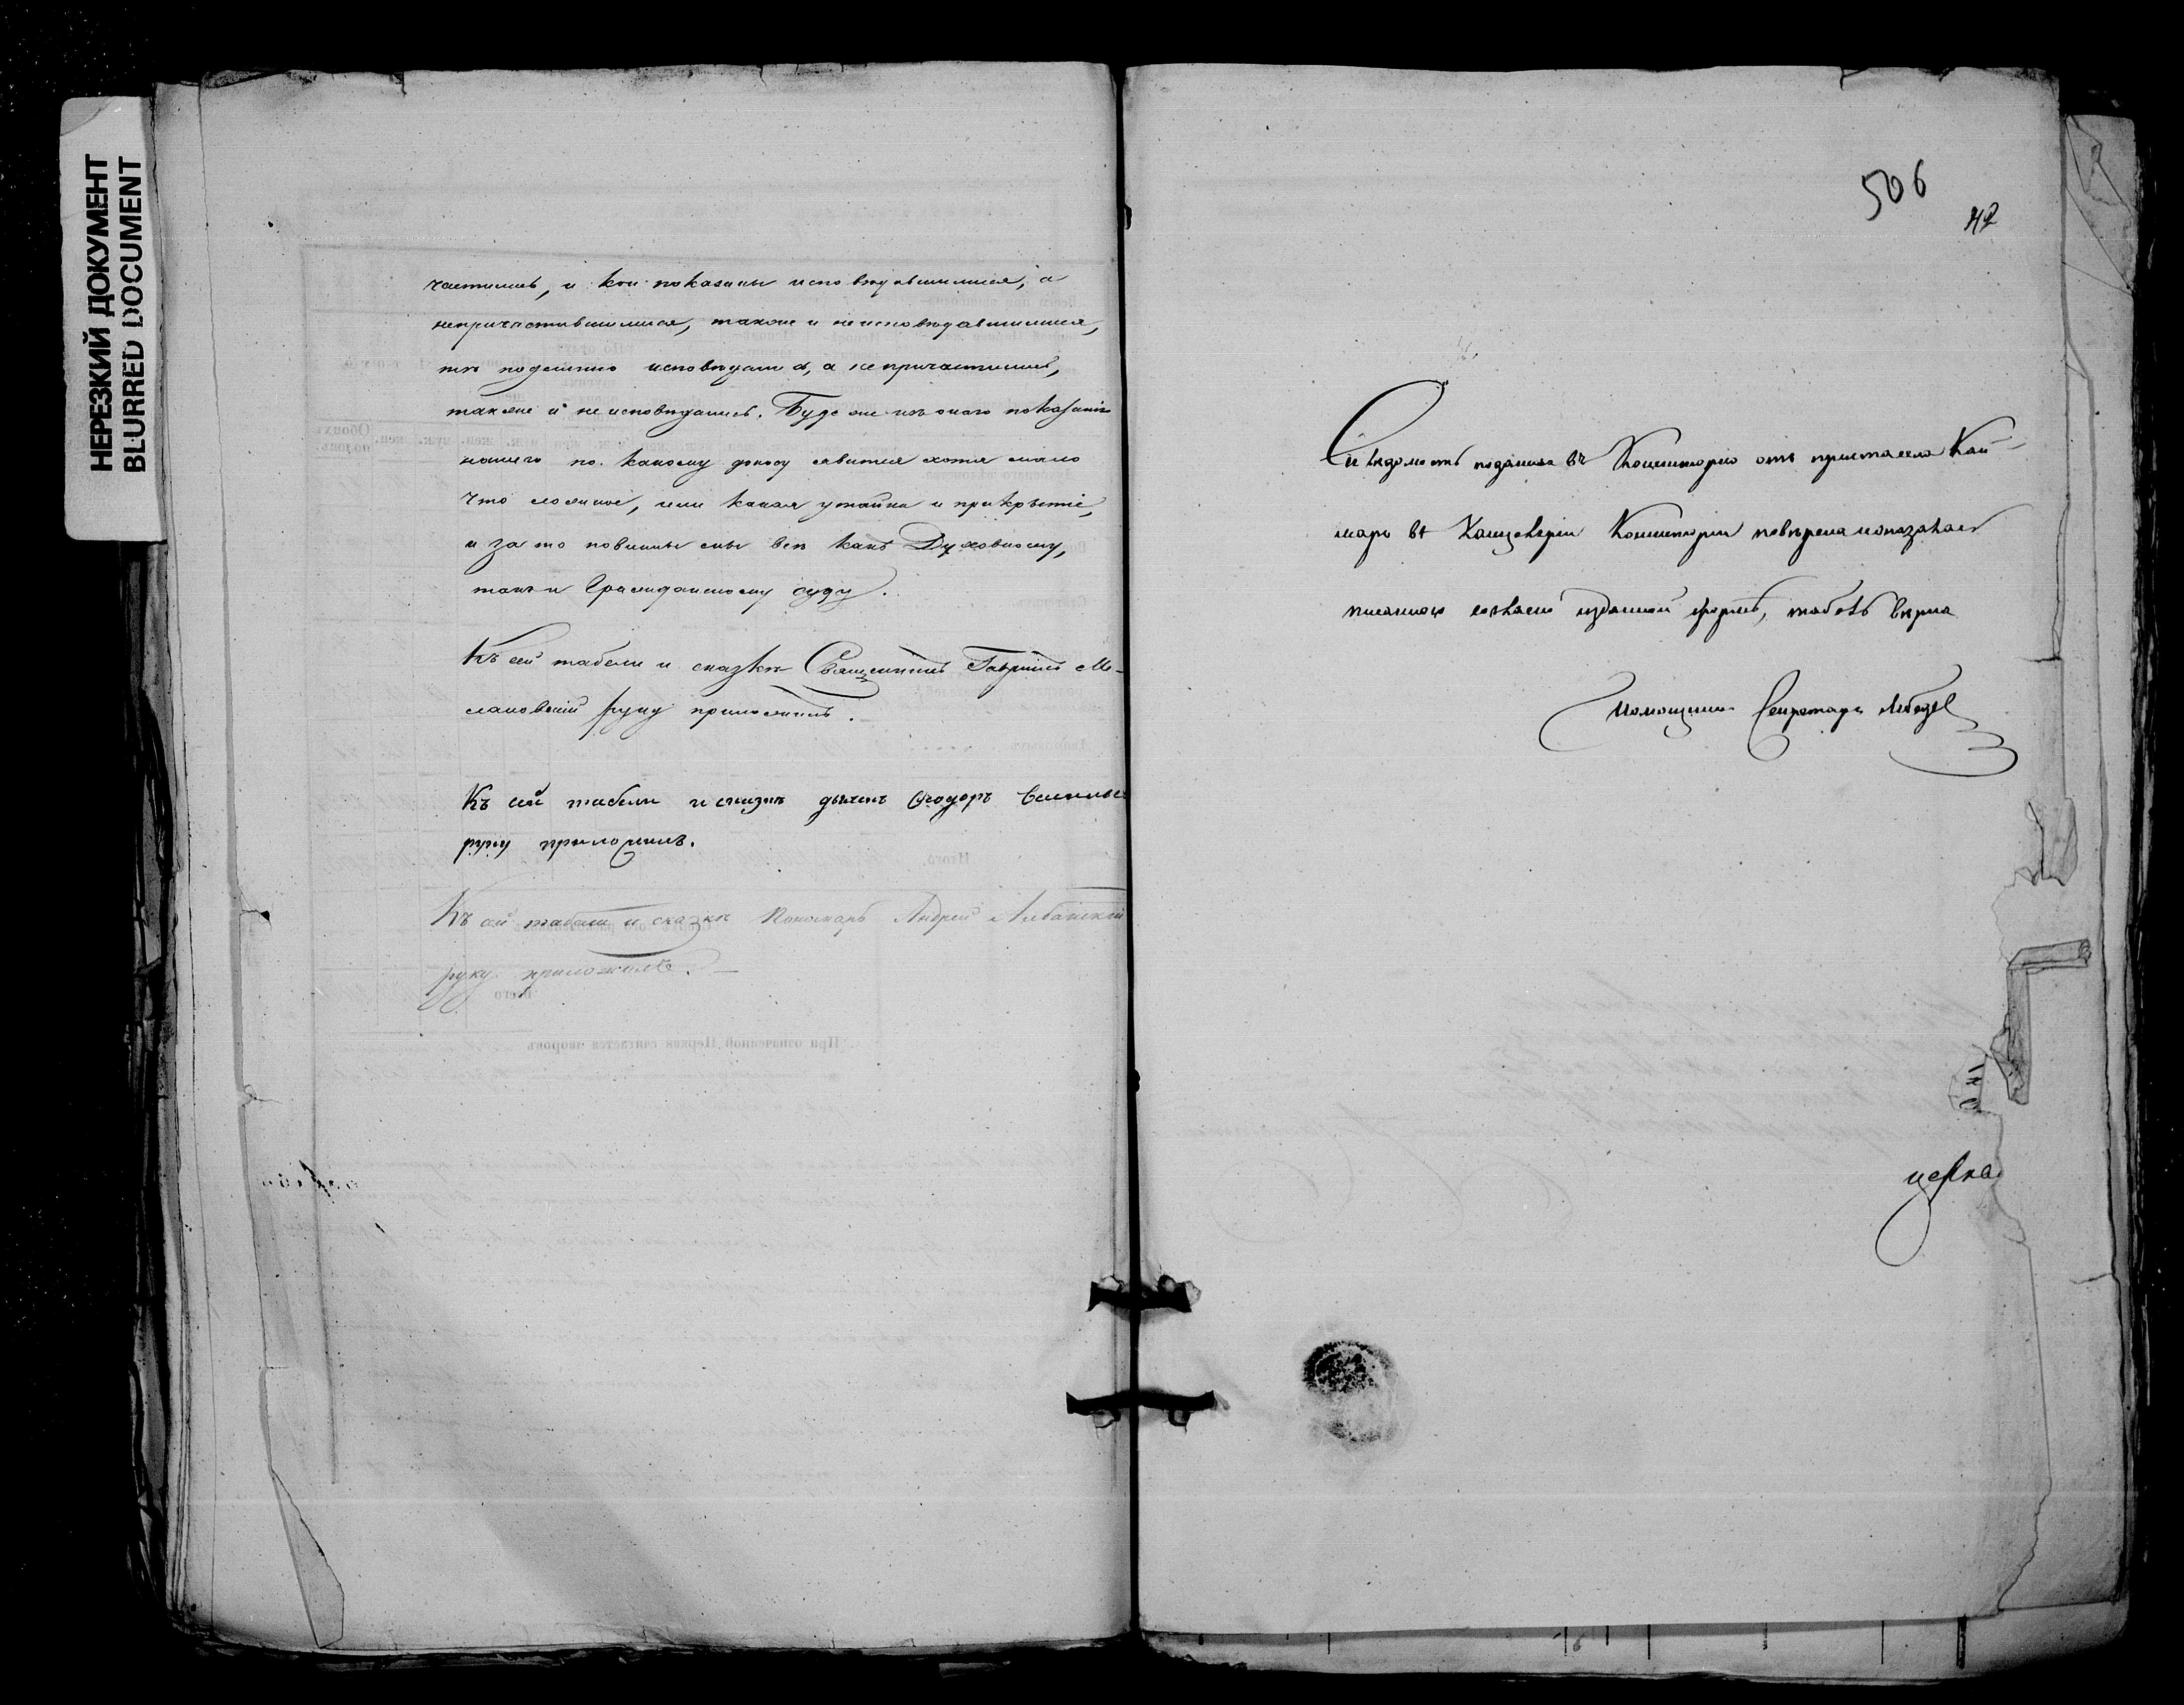 НЕРЕЗКИЙ ДОКУМЕНТ
BLURRED DOCUMENT
частились, и кои показаны исповѣдавшимися, а
непричастившимися, також и неисповѣдавшимися,
тѣ подлинно исповѣдались, а непричастились,
также и неисповѣдались. Буде же изъ онаго показанія
нашего по какому доносу явится хотя мало
что ложное, или какая утайка и прикрытіе,
и за то повинны мы всѣ какъ Духовному,
такъ и Гражданскому суду.
Къ сей табели и сказкѣ Священникъ Гавріилъ
руку приложилъ.
Къ сей табели и сказкѣ дьячекъ Ѳеодоръ
руку приложилъ.
Къ сей табели и сказкѣ Пономарь Андрей Албанскій
руку приложилъ.
506
42
Сія вѣдомость подана въ Консисторію отъ села Кай-
маръ въ Канцеляріи Консисторіи повѣрена и оказалась
писанною согласно изданной формѣ, табель вѣрна
Помощникъ Секретаря Лебедев